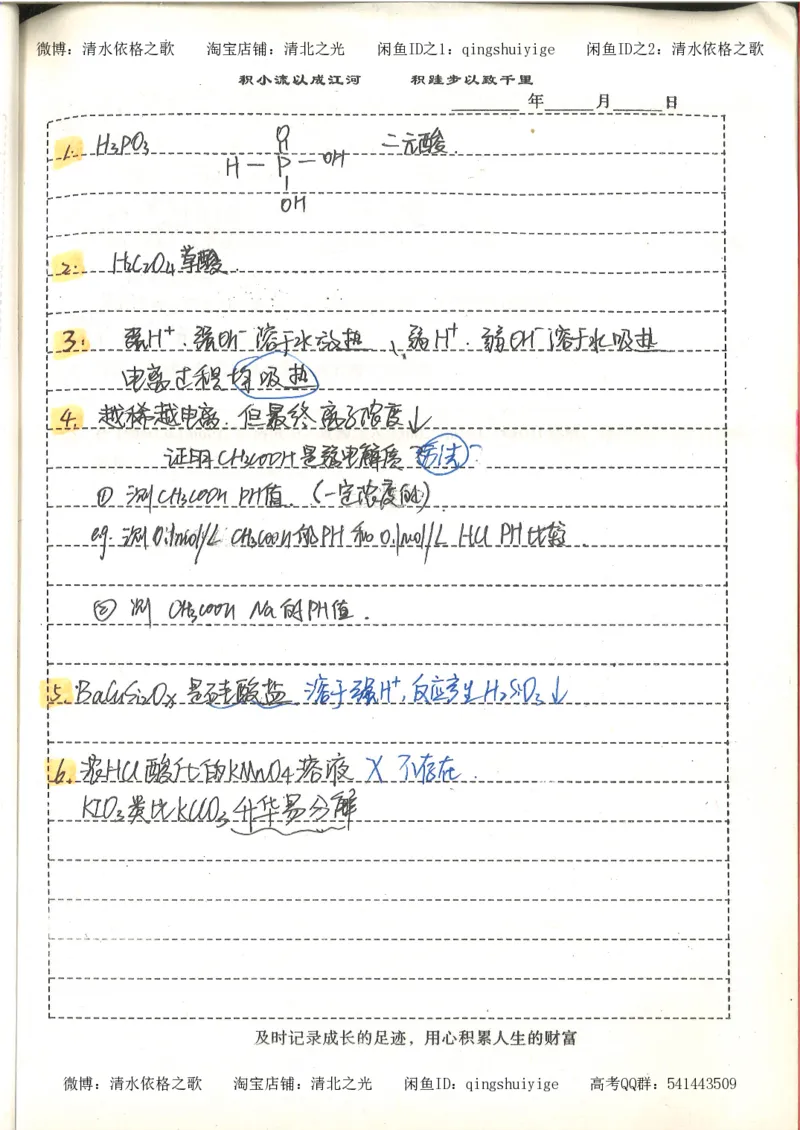 微博：清水依格之歌 淘宝店铺：清北之光 闲鱼ID之1：qingshuiyige 闲鱼ID之2：清水依格之歌
积小流以成江河 积跬步以致千里
年 月 日
1. H3PO3 二元酸.
O
H—P—OH
OH
2. H2C2O4 草酸.
3. 强H⁺、强OH⁻溶于水放热、弱H⁺、弱OH⁻溶于水吸热
电离过程均吸热
4. 越稀越电离，但最终离子浓度↓
证明CH3COOH是弱电解质方法？
① 测CH3COOH PH值.（一定浓度的）
eg. 测0.1mol/L CH3COOH的PH和0.1mol/L HCl PH比较.
② 测 CH3COOH Na的PH值.
5. BaCuSi2Ox 是硅酸盐. 溶于强H⁺, 反应产生H2SiO3↓
6. 浓HCl酸化的KMnO4溶液 X 不存在.
KIO3类比KClO3 升华易分解
及时记录成长的足迹，用心积累人生的财富
微博：清水依格之歌 淘宝店铺：清北之光 闲鱼ID：qingshuiyige 高考QQ群：541443509